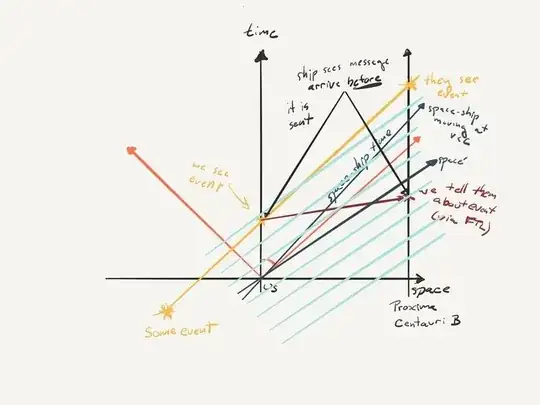 time
ship sees message
arrive before
it is
sent
they see
event
space-ship
moving at
v≤c
space-ship time
space'
we see
event
we tell them
about event
(via FTL)
us
space
Proxima
Centauri B
Some event